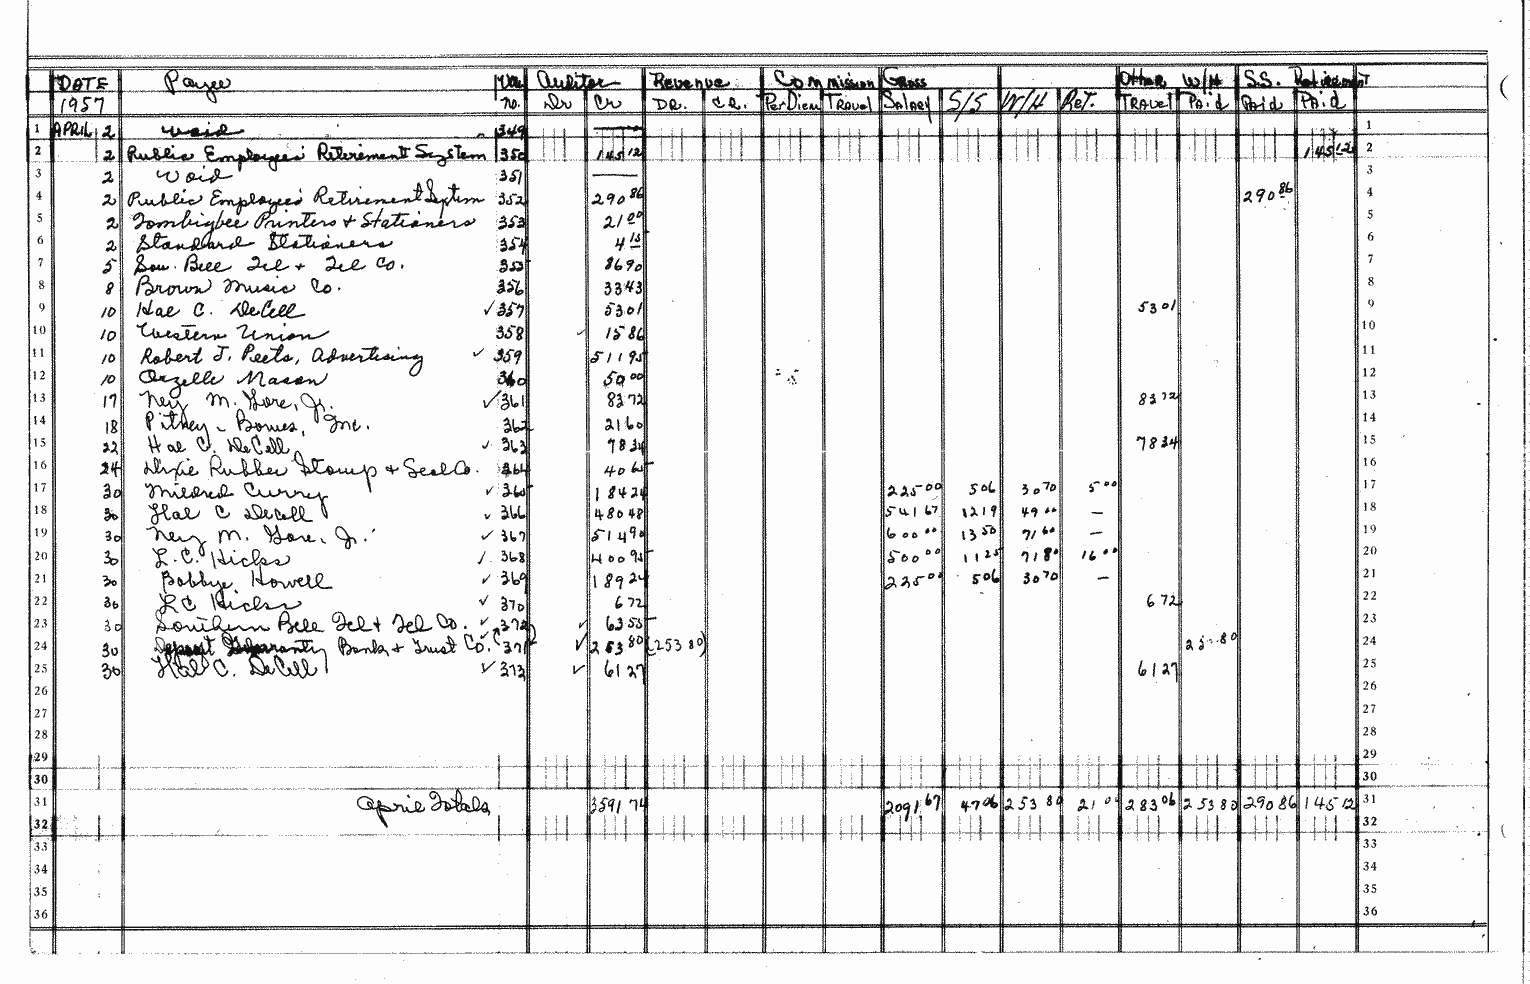 DATE Payee Vou Auditor Revenue Commission Gross Other W/H S.S. Retirement
1957 no. Dr Cr DR. CR. Per Diem Travel Salary S/S W/H Ret. TRAVEL Paid Paid Paid
1 APRIL 2 Void 349 — 1
2 2 Public Employees' Retirement System 350 145 12 145 12 2
3 2 Void 351 — 3
4 2 Public Employees' Retirement System 352 290 86 290 86 4
5 2 Tombigbee Printers & Stationers 353 21 00 5
6 2 Standard Stationers 354 4 15 6
7 5 Sou. Bell Tel & Tel Co. 355 86 90 7
8 8 Brown Music Co. 356 33 43 8
9 10 Hal C. DeCell ✓ 357 53 01 53 01 9
10 10 Western Union 358 ✓ 15 86 10
11 10 Robert J. Peets, Advertising ✓ 359 511 95 11
12 10 Ozelle Mason 360 50 00 12
13 17 Ney M. Gore, Jr. ✓ 361 83 72 83 72 13
14 18 Pitney-Bowes, Inc. 362 21 60 14
15 22 Hal C. DeCell ✓ 363 78 34 78 34 15
16 24 Dixie Rubber Stamp & Seal Co. 364 4 06 16
17 30 Mildred Curry ✓ 365 184 24 225 00 5 06 30 70 5 00 17
18 30 Hal C DeCell ✓ 366 480 48 541 67 12 19 49 00 — 18
19 30 Ney M. Gore, Jr. ✓ 367 514 90 600 00 13 50 71 60 — 19
20 30 L.C. Hicks ✓ 368 400 95 500 00 11 25 71 80 16 00 20
21 30 Bobbye Howell ✓ 369 189 24 225 00 5 06 30 70 — 21
22 30 LC Hicks ✓ 370 6 72 6 72 22
23 30 Southern Bell Tel & Tel Co. ✓ 372 ✓ 63 55 23
24 30 Deposit Guaranty Bank & Trust Co. ✓ 371 ✓ 253 80 (253 80) 253 80 24
25 30 Hal C. DeCell ✓ 373 ✓ 61 27 61 27 25
26 26
27 27
28 28
29 29
30 30
31 April Totals 3591 74 2091 67 47 06 253 80 21 00 283 06 253 80 290 86 145 12 31
32 32
33 33
34 34
35 35
36 36